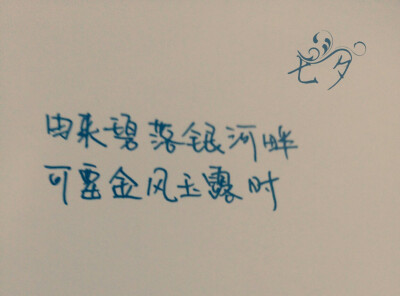 七夕
由来碧落银河畔
可要金风玉露时